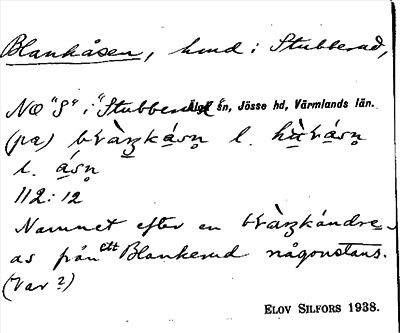 Blankåsen, hmd i Stubberud,
NO "8" i "Stubberud" Älgå sn, Jösse hd, Värmlands län.
(på) l.
l. ásn̥
112:12
Namnet efter en
as från ett Blankerud någonstans.
(var?)
ELOV SILFORS 1938.